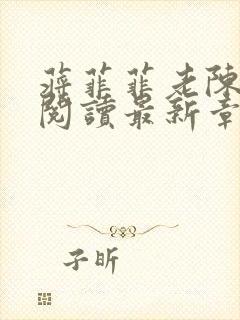 蔣菲菲老陳
閱讀最新章
子昕